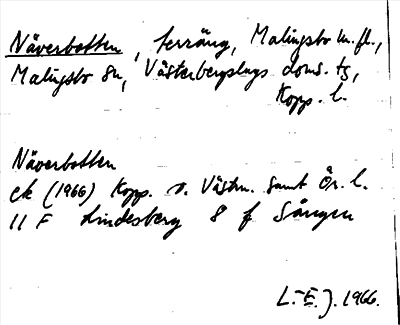 Näverbotten, terräng, Malingsbo kr.fl.,
Malingsbo sn, Västerbergslags doms. tg,
Kopp. l.
Näverbotten
ek (1966) Kopp. o. Västm. samt Ör. l.
11 F Lindesberg 8 f Sången
L.-E. J. 1966.